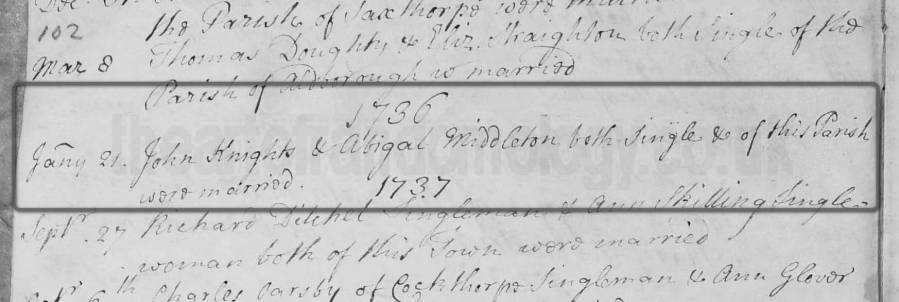 the Parish of Saxthorpe were
102
Mar 8 Thomas Doughty & Eliz. Straighton both Single of the
Parish of w married
1736
Jañy 21. John Knights & Abigal Middleton both Single & of this Parish
were married.
1737
Septr. 27 Richard Ditchel Singleman & Ann Skilling Single-
woman both of this Town were married
6th Charles Carsby of Cockthorpe Singleman & Ann Glover